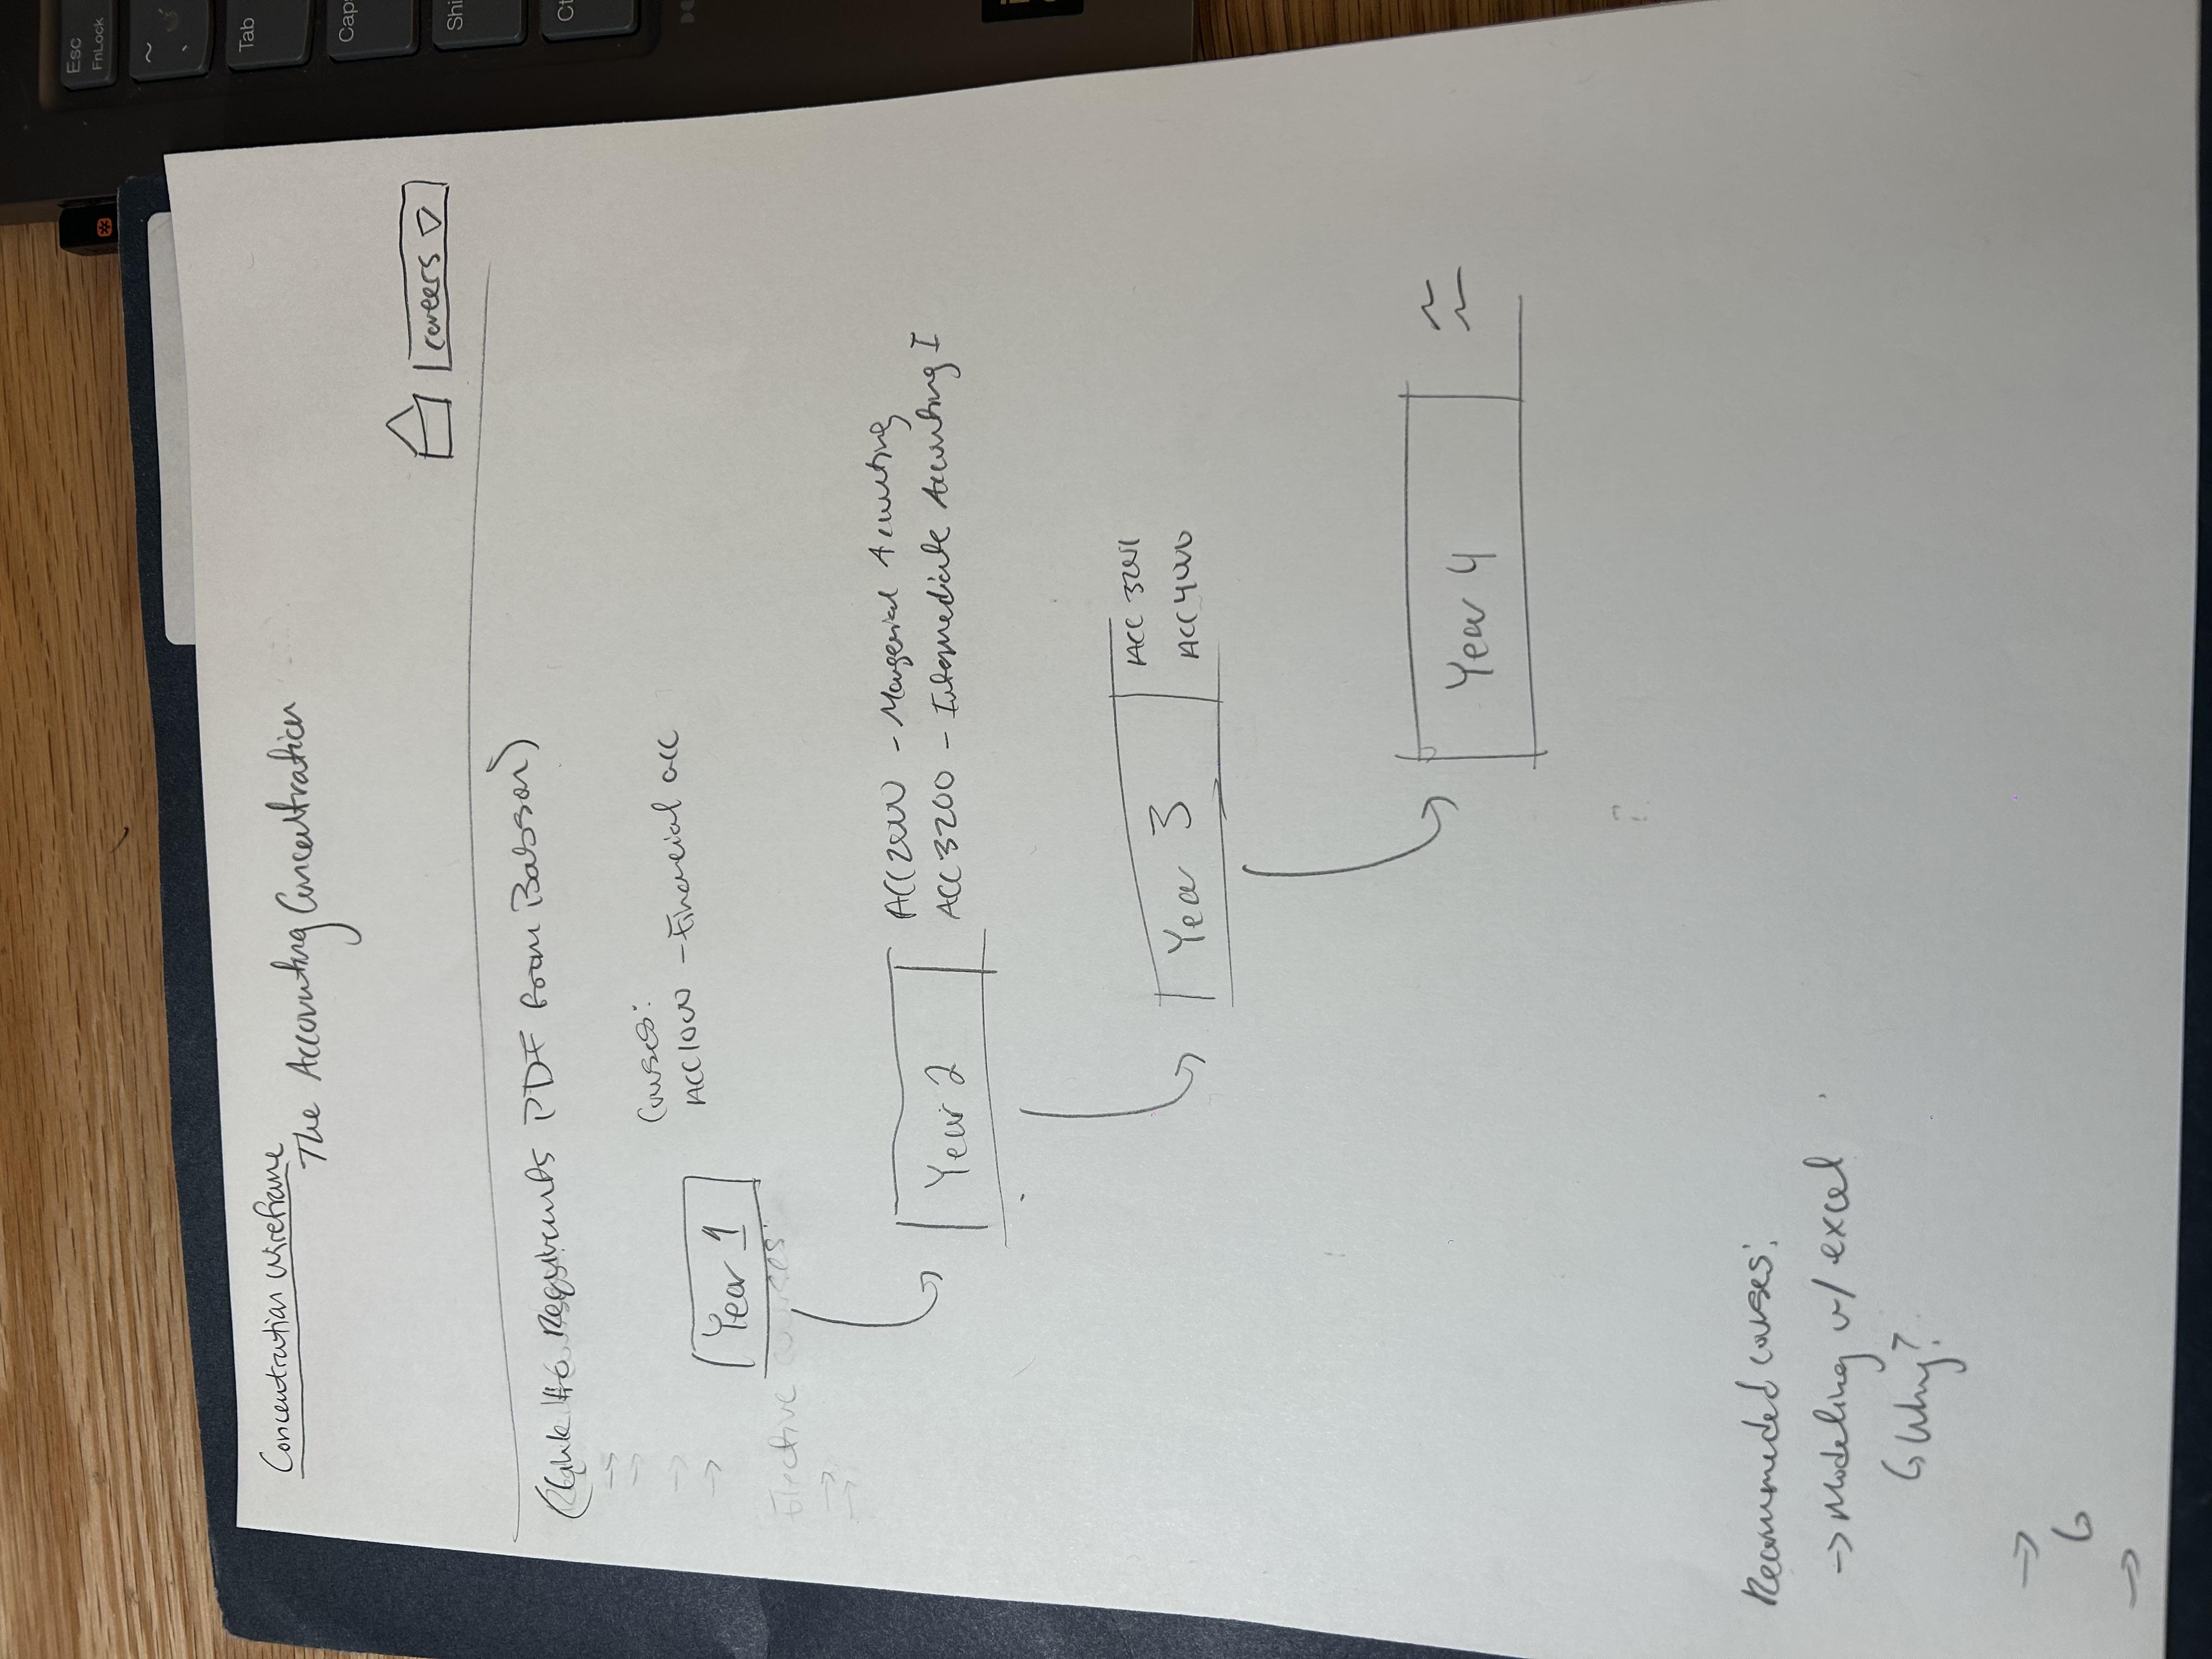 Concentration Wireframe
The Accounting Concentration
careers
(Link to Requirements PDF from Babson)
Courses:
ACC1000 - Financial acc
Year 1
Elective courses:
ACC2000 - Mangerial Accounting
ACC3200 - Intermediate Accounting I
Year 2
ACC 3201
ACC4000
Year 3
Year 4
Recommeded courses:
→ Modeling w/ excel
↳ Why?
→
↳
→
Esc
FnLock
~
`
Tab
Caps
Shi
Ct